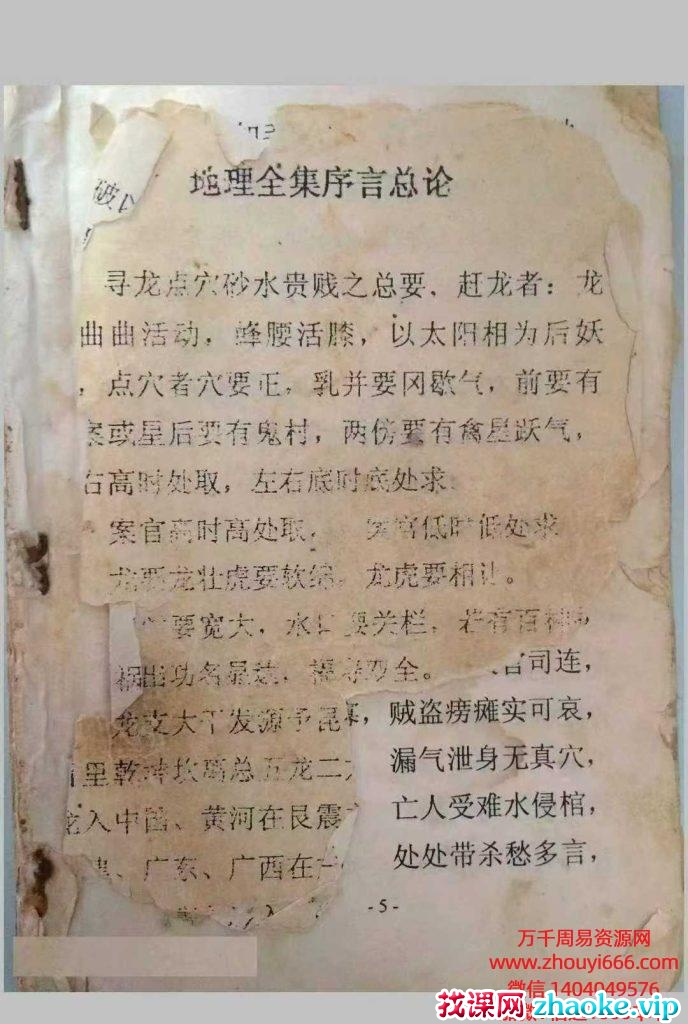 破
地理全集序言总论
寻龙点穴砂水贵贱之总要、赶龙者：龙
曲曲活动，蜂腰活膝，以太阳相为后妖
，点穴者穴要正，乳并要冈歇气，前要有
案或星后要有鬼村，两傍要有禽星跃气，
右高时处取，左右底时底处求
案官高时高处取， 案官低时低处求
龙要龙壮虎要软绵，龙虎要相让。
要宽大，水口要关栏，若有百
出功名显达，双全。 官司连，
龙支大干发源于昆 ，贼盗痨瘫实可哀，
里乾坤坎离总五龙二 漏气泄身无真穴，
龙入中国、黄河在艮震 亡人受难水侵棺，
、广东、广西在 处处带杀愁多言，
入
-5-
万千周易资源网
www.zhouyi666.com
微信 1404049576
找课网zhaoke.vip